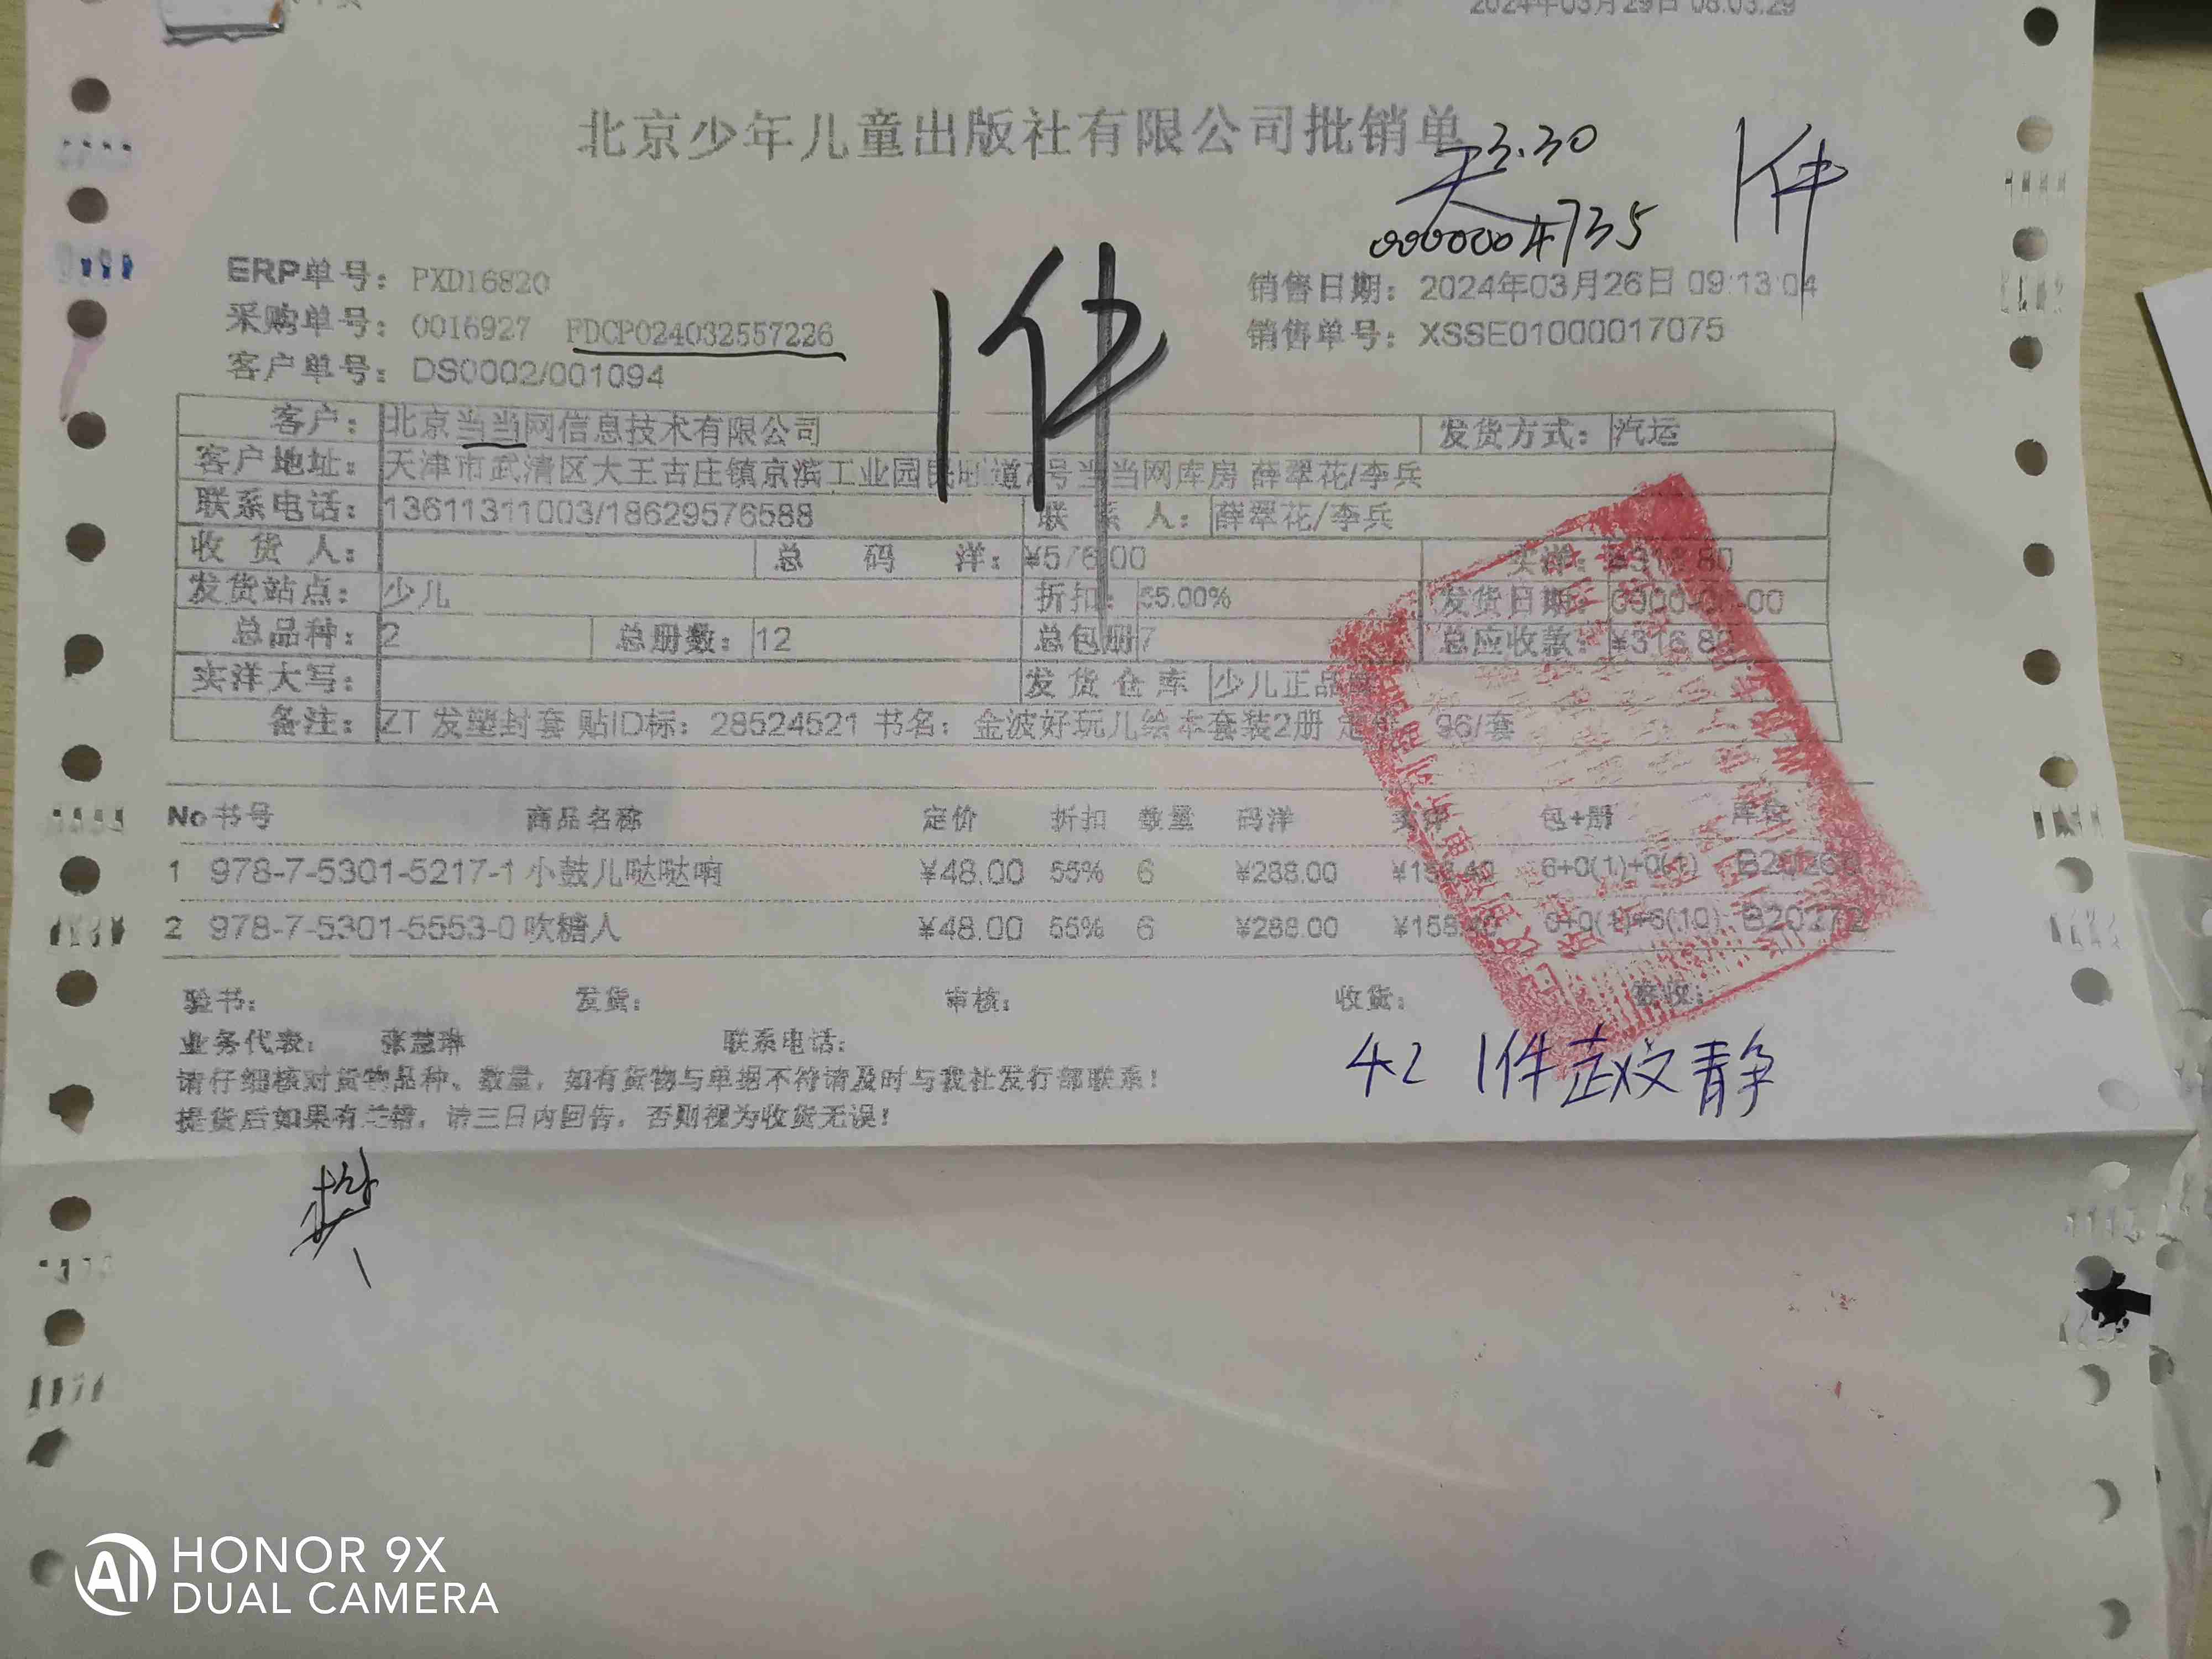 2024年03月29日 08:03:29
北京少年儿童出版社有限公司批销单
3.30
天
1件
0000004735
1件
ERP单号： PXD16820
销售日期： 2024年03月26日 09:13:04
采购单号： 0016927 FDCP024032557226
销售单号： XSSE01000017075
客户单号： DS0002/001094
客户： 北京当当网信息技术有限公司 发货方式： 汽运
客户地址： 天津市武清区大王古庄镇京滨工业园民 道 号当当网库房 薛翠花/李兵
联系电话： 13611311003/18629576588 联系人： 薛翠花/李兵
收货人： 总码洋： ¥576.00 实洋： ¥316.80
发货站点： 少儿 折扣： 55.00% 发货日期：
总品种： 2 总册数： 12 总包册 7 总应收款： ¥316.80
实洋大写： 发货仓库 少儿正品
备注： ZT 发塑封套 贴ID标： 28524521 书名： 金波好玩儿绘本套装2册 定 96/套
No 书号 商品名称 定价 折扣 数量 码洋 实洋 包+册 库位
1 978-7-5301-5217-1 小鼓儿哒哒响 ¥48.00 55% 6 ¥288.00 ¥158.40 6+0(1)+0(1)
2 978-7-5301-5553-0 吹糖人 ¥48.00 55% 6 ¥288.00 ¥158.40
验书： 发货： 审核： 收货： 签收：
业务代表： 张慧琳 联系电话：
请仔细核对货物品种、数量，如有货物与单据不符请及时与我社发行部联系！
提货后如果有差错，请三日内回告，否则视为收货无误！
4.2 1件 赵文静
HONOR 9X
DUAL CAMERA